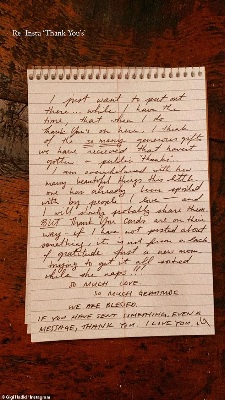 Re Insta 'Thank You's'
I just want to put out
there... while I have the
time, that when I do
thank you's on here, I think
of the so many generous gifts
we have recieved that havent
gotten a public 'thanks'.
I am overwhelmed with how
many beautiful things the little
one has already been spoiled
with by people I love — and
I will slowly probably share them.
BUT Thank You Cards are on their
way - if I have not posted about
something, it is not from a lack
of gratitude just a new mom
trying to get it all sorted
while she naps!
SO MUCH LOVE.
SO MUCH GRATITUDE
WE ARE BLESSED.
IF YOU HAVE SENT SOMETHING, EVEN A
MESSAGE, THANK YOU. I LOVE YOU.
© Gigi Hadid / Instagram